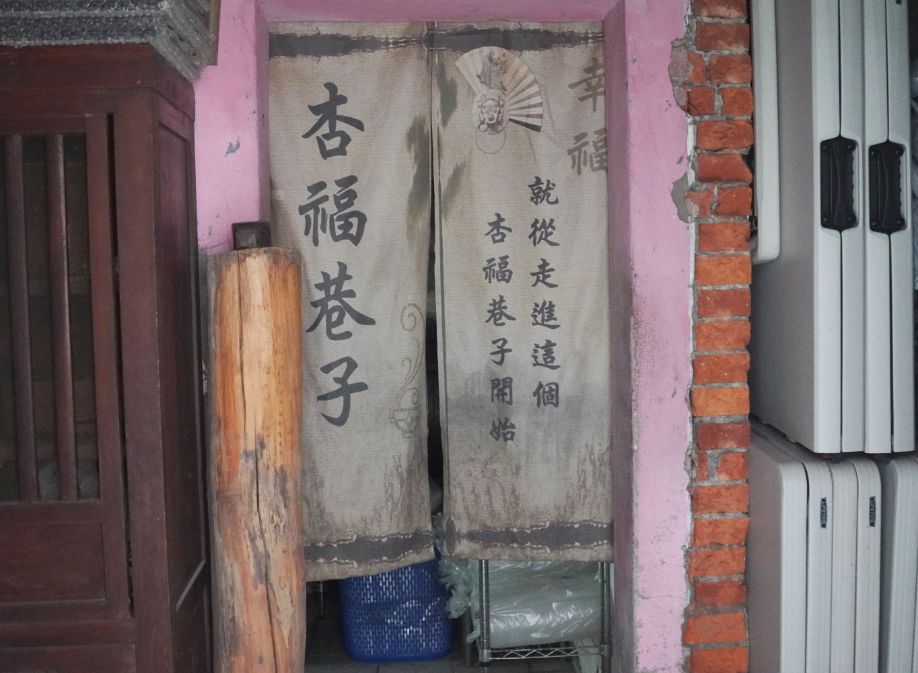 幸福
就從走進這個
杏福巷子開始
杏福巷子